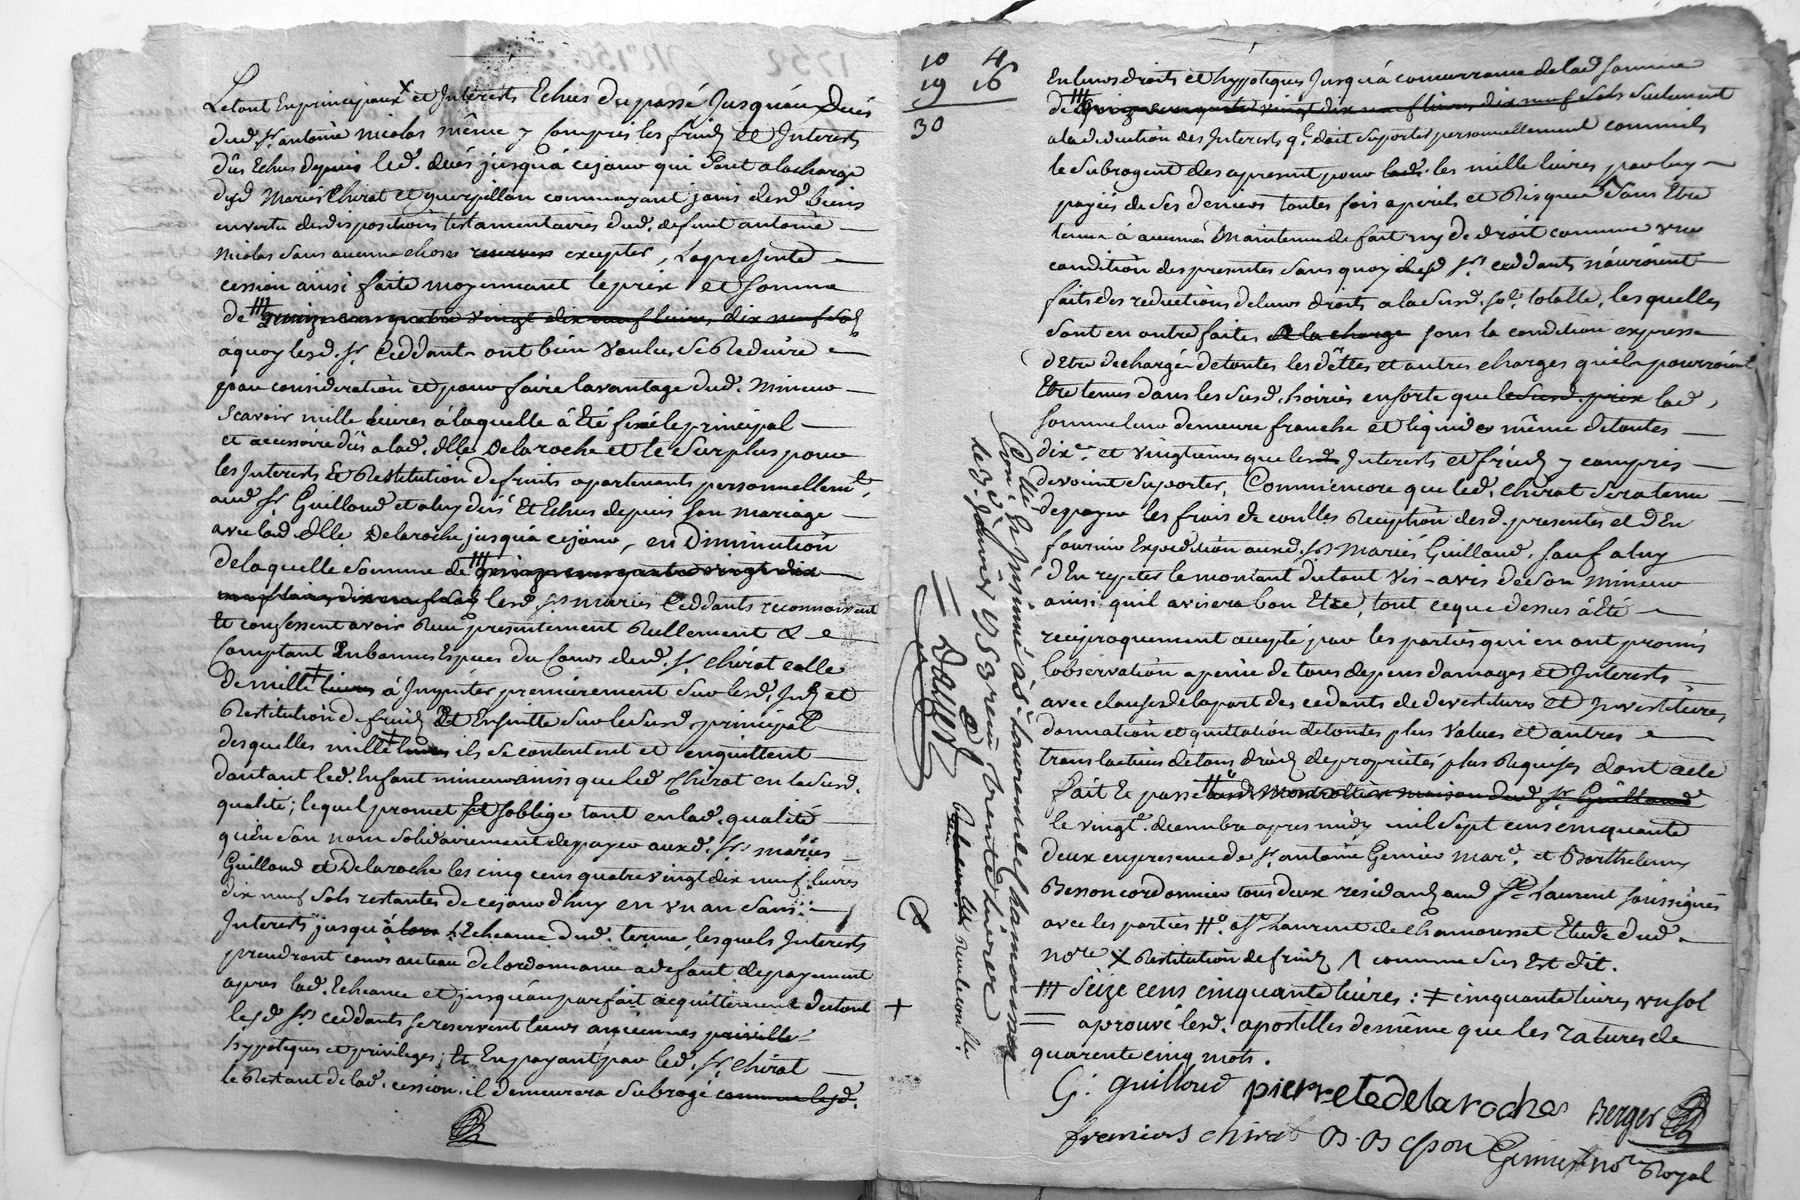 Letout Enprincipaux X et Interests Echus du passé Jusquáu Dués
dud. Sr. antoine nicolas même y Compris les fruits et Interests
dûs Echus depuis led. dués jusquá cejour qui sont alacharge
desd Mariés Chirat et querpillon commayant jouis desd. biens
envertu desdispositions testamentaires dud. defunt antoine
Nicolas sans aucune choses reserver excepter, Lapresente
cession ainsi faite moyennant leprix et somme
de ttt quinze cens quatre vingt dix neuf livres dix neuf sols
áquoy lesd. Srs Ceddants ont bien voulus se Reduire
par consideration et pour faire lavantage dud. mineur
Scavoir mille livres álaquelle á Eté fixé leprincipal
et accessoire dûs alad. dlle Delaroche et le Surplus pour
les Interests Et Restitution defruits apartenants personnellemt.
aud Sr Guilloud etaluy dûs Et Echus depuis son mariage
avec lad. dlle Delaroche jusquá cejour, en Diminution
delaquelle Somme de ttt quinze cens quatre vingt dix
neuf livres dix neuf sols lesd Srs mariés Ceddants reconnoissent
Et confessent avoir Reçu presentement Reellement &
Comptant Enbonnes Especes du Cours dud. Sr. Chirat celle
de mille livres á Imputer premierement sur lesd. Ints et
Restitution de fruits Et Ensuitte sur lesusd. principal
desquelles mille livres ils se contentent et enquittent
dautant led. Enfant mineur ainsi que led Chirat en lasusd.
qualité; lequel promet Et soblige tant enlad. qualité
quEn son nom solidairement depayer auxd. Srs mariés
Guilloud et Delaroche les cinq cens quatre vingt dix neuf livres
dix neuf sols restantes de cejourdhuy en vn an sans
Interests jusquá lors lEcheance dud. terme, lesquels Interests
prendront cours auteau delordonnance adefaut depayement
apres lad. Echeance et jusquáuparfait acquittement dutout
lesd Srs ceddants sereservent leurs anciennes priville
hypoteques et privileges; Et Enpayant par led. Sr. Chirat
le Restant de lad. cession. il demeurera Subrogé comme lesd.
10 4
19 16
30
Enleurs droits et hypoteques Jusquá concurrance delad Somme
de ttt quinze cens quatre vingt dix neuf livres dix neuf sols seulement
ala deduction des Interests ql. doit suporter personnellement comme ils
le subrogent des apresent pour lad. les mille livres par luy
payées de ses deniers toutes fois aperils et Risques Sans Etre
tenus á aucunes Maintenue de fait ny de droit comme vne
condition des presentes sans quoy lesd Srs ceddants náuroient
faits des reductions deleurs droits alasusd. So. totalle, les quelles
sont en outre faites á la charge sous la condition expresse
dEtre dechargés detoutes les dêttes et autres charges quils pourroient
Etre tenus dans les susd. hoiries ensorte que lesusd. prix lad,
Somme leur demeure franche et liquide même detoutes
dixe. et vingtiemes que lesd Interests et fruits y compris
devoient suporter, Comme encore que led. Chirat sera tenu
depayer les frais de coulles Reception desd. presentes et dEn
fournir Expedition auxd. Srs Mariés Guilloud, sauf aluy
dEn rejeter le montant dutout vis-avis deson mineur
ainsi quil avisera bon Etre, tout ceque dessus á été
reciproquement accepté par les parties qui en ont promis
lobservation apeine de tous depens damages et Interests
avec clauses delapart des cedants de devestitures et Investitures
donnation et quittation detoutes plus values et autres
translactives detous droits depropriétés plus Requises dont acte
fait Et passé ttº aud. Montrottier maison dud. Sr. Guilloud
le vingte. decembre apres midy mil sept cens cinquante
deux enpresence de Sr. antoine Gemier mard. et Barthelemy
Besson cordonnier tous deux residants aud St. Laurent soussignés
avec les parties ttº. aSt. Laurent de Chamousset Etude dud.
nore X Restitution defruits /\ comme sus Est dit.
ttt Seize cens cinquante livres : ǂ cinquante livres vn sol
aprouvé lesd. apostilles demême que les ratures de
quarente cinq mots.
G. guilloud pierrete delaroches Berger
fremiers chirat B. Besson Gemier nore Royal
Con.llé Et Insinué á St. Laurent de Chamousset
le 3e. janvier 1753 reçu trente livres
Dausse